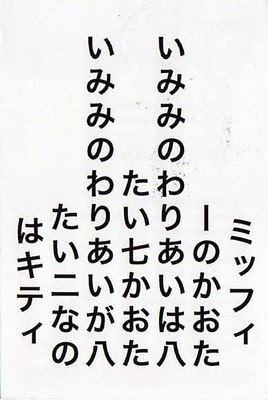 ミッフィ
ーのかおた
いみみのわりあいは八
たい七かおた
いみみのわりあいが八
たい二なの
はキティ